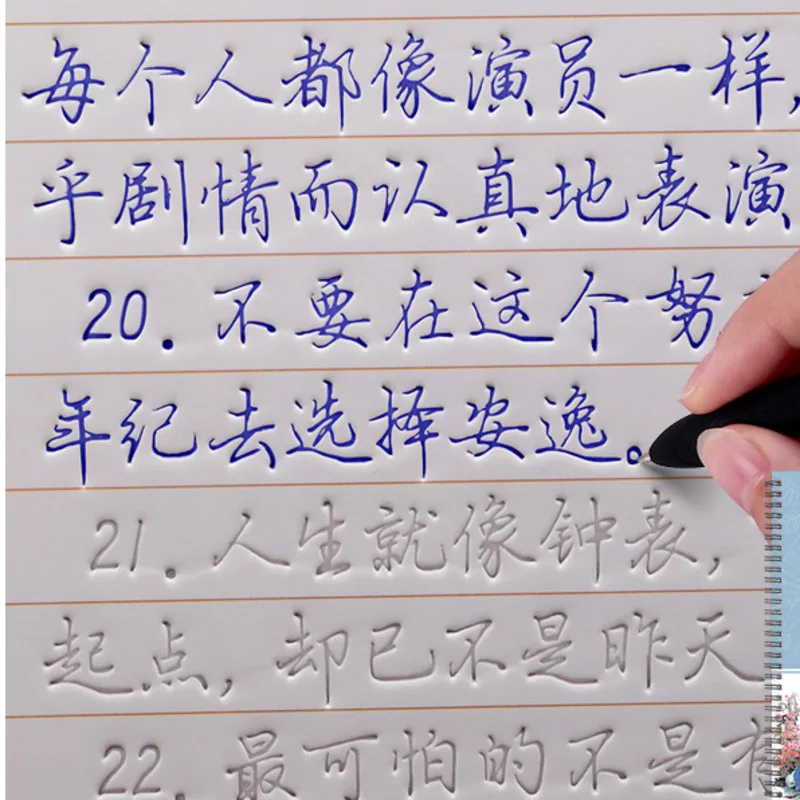 每个人都像演员一样,
乎剧情而认真地表演
20.不要在这个努
年纪去选择安逸。
21.人生就像钟表,
起点,却已不是昨天
22.最可怕的不是有